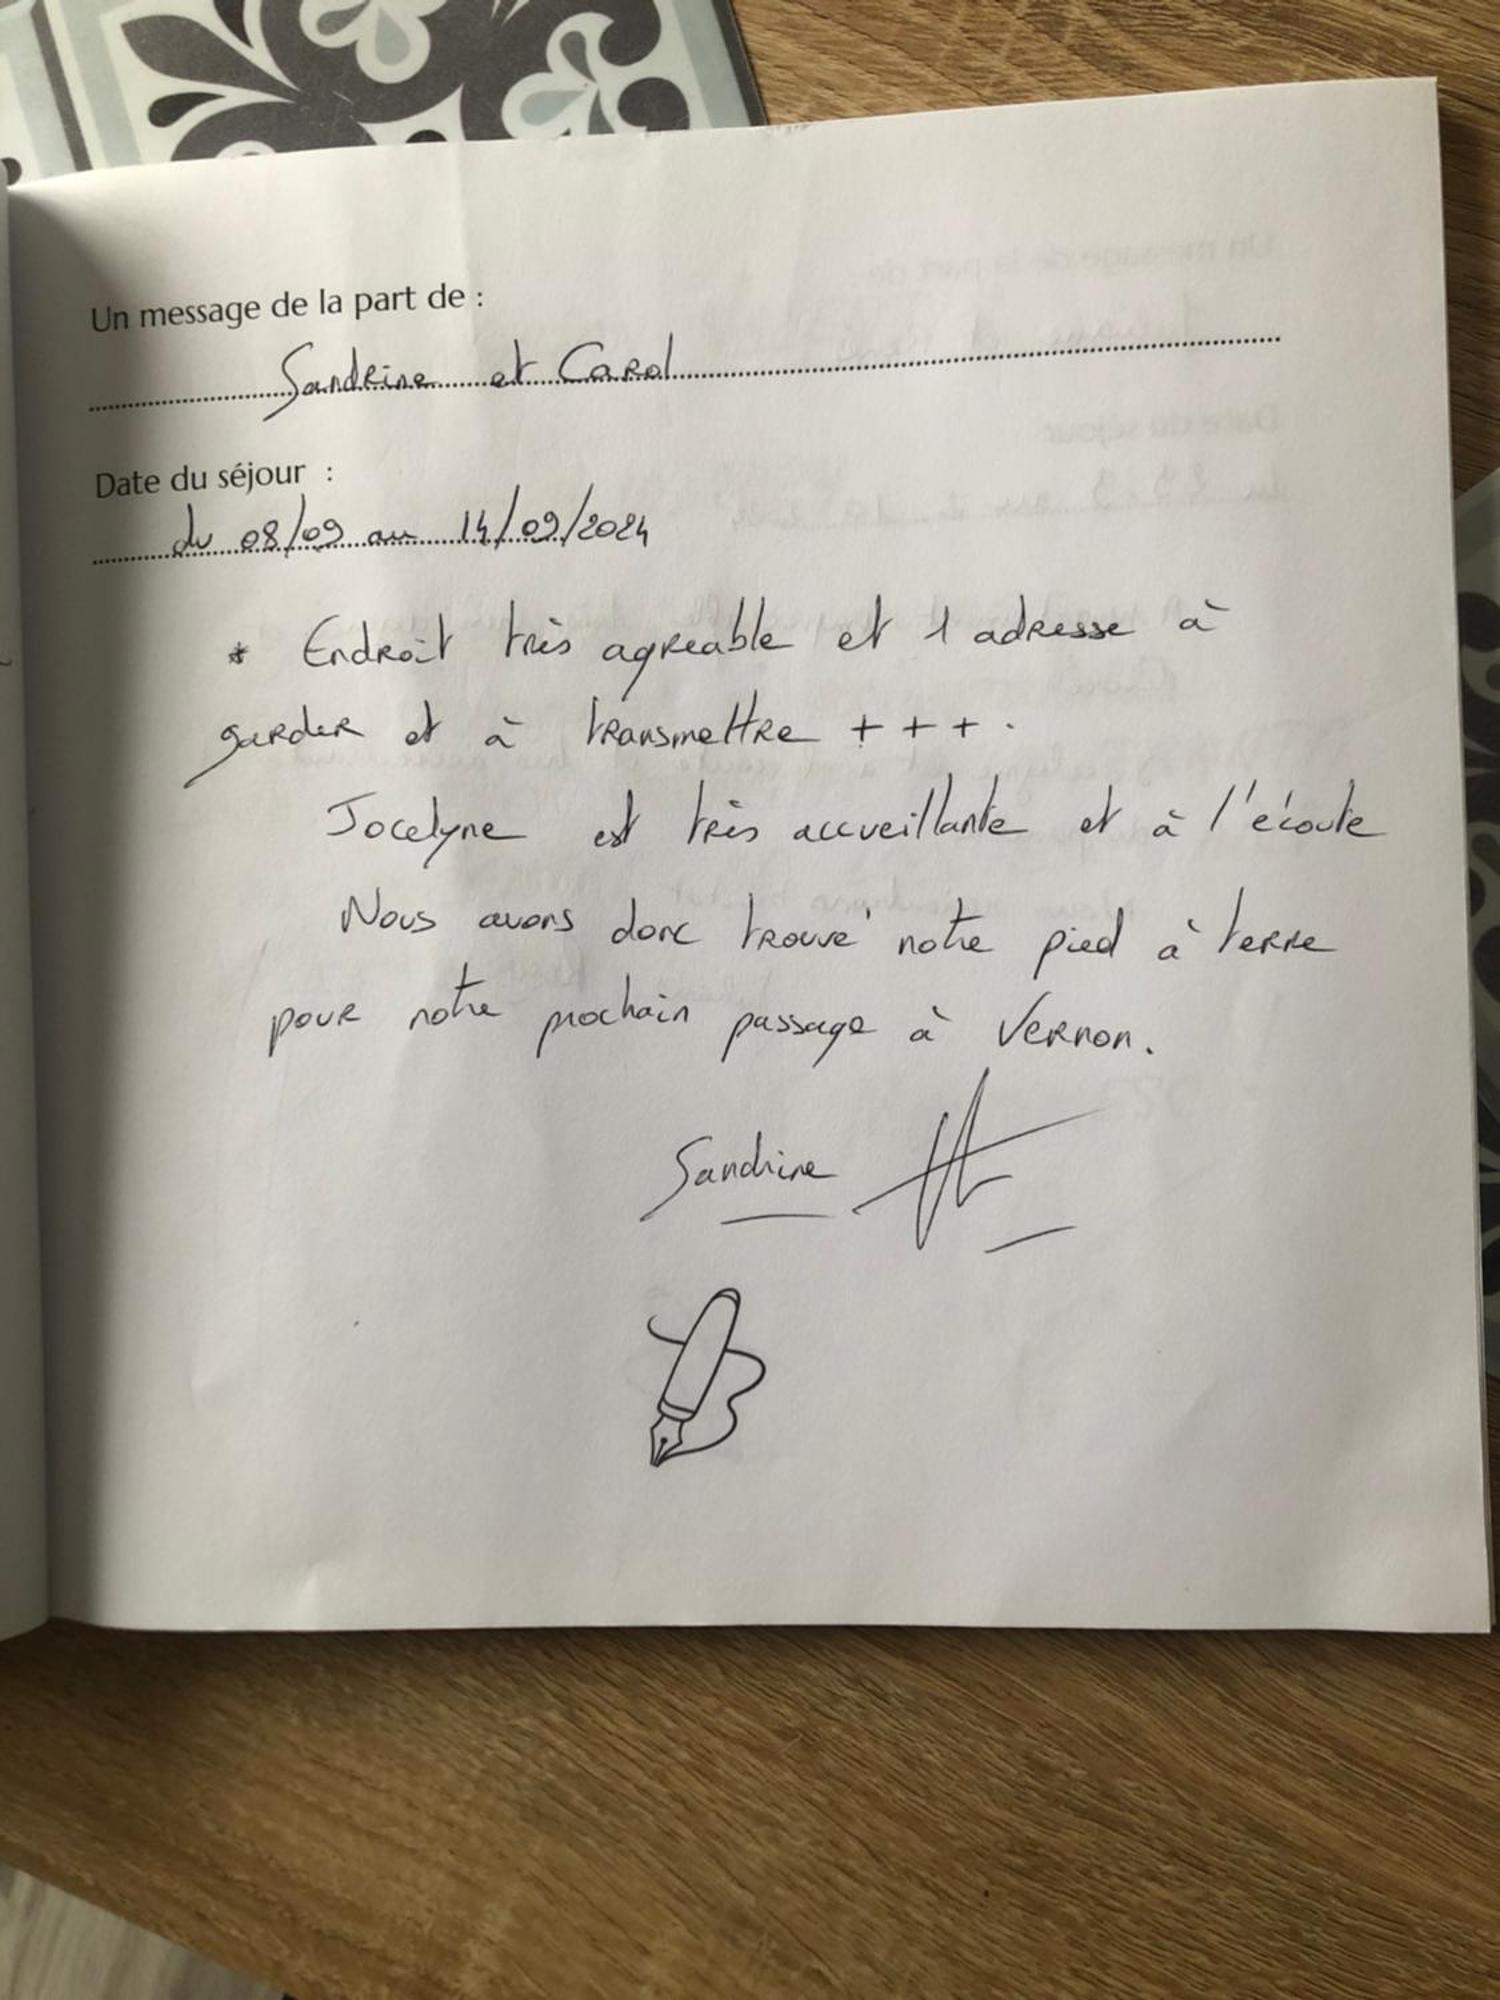 Un message de la part de :
Sandrine et Carol
Date du séjour :
du 08/09 au 14/09/2024
* Endroit très agreable et 1 adresse à
garder et à transmettre + + + .
Jocelyne est très accueillante et à l'écoute
Nous avons donc trouvé notre pied à terre
pour notre prochain passage à Vernon.
Sandrine